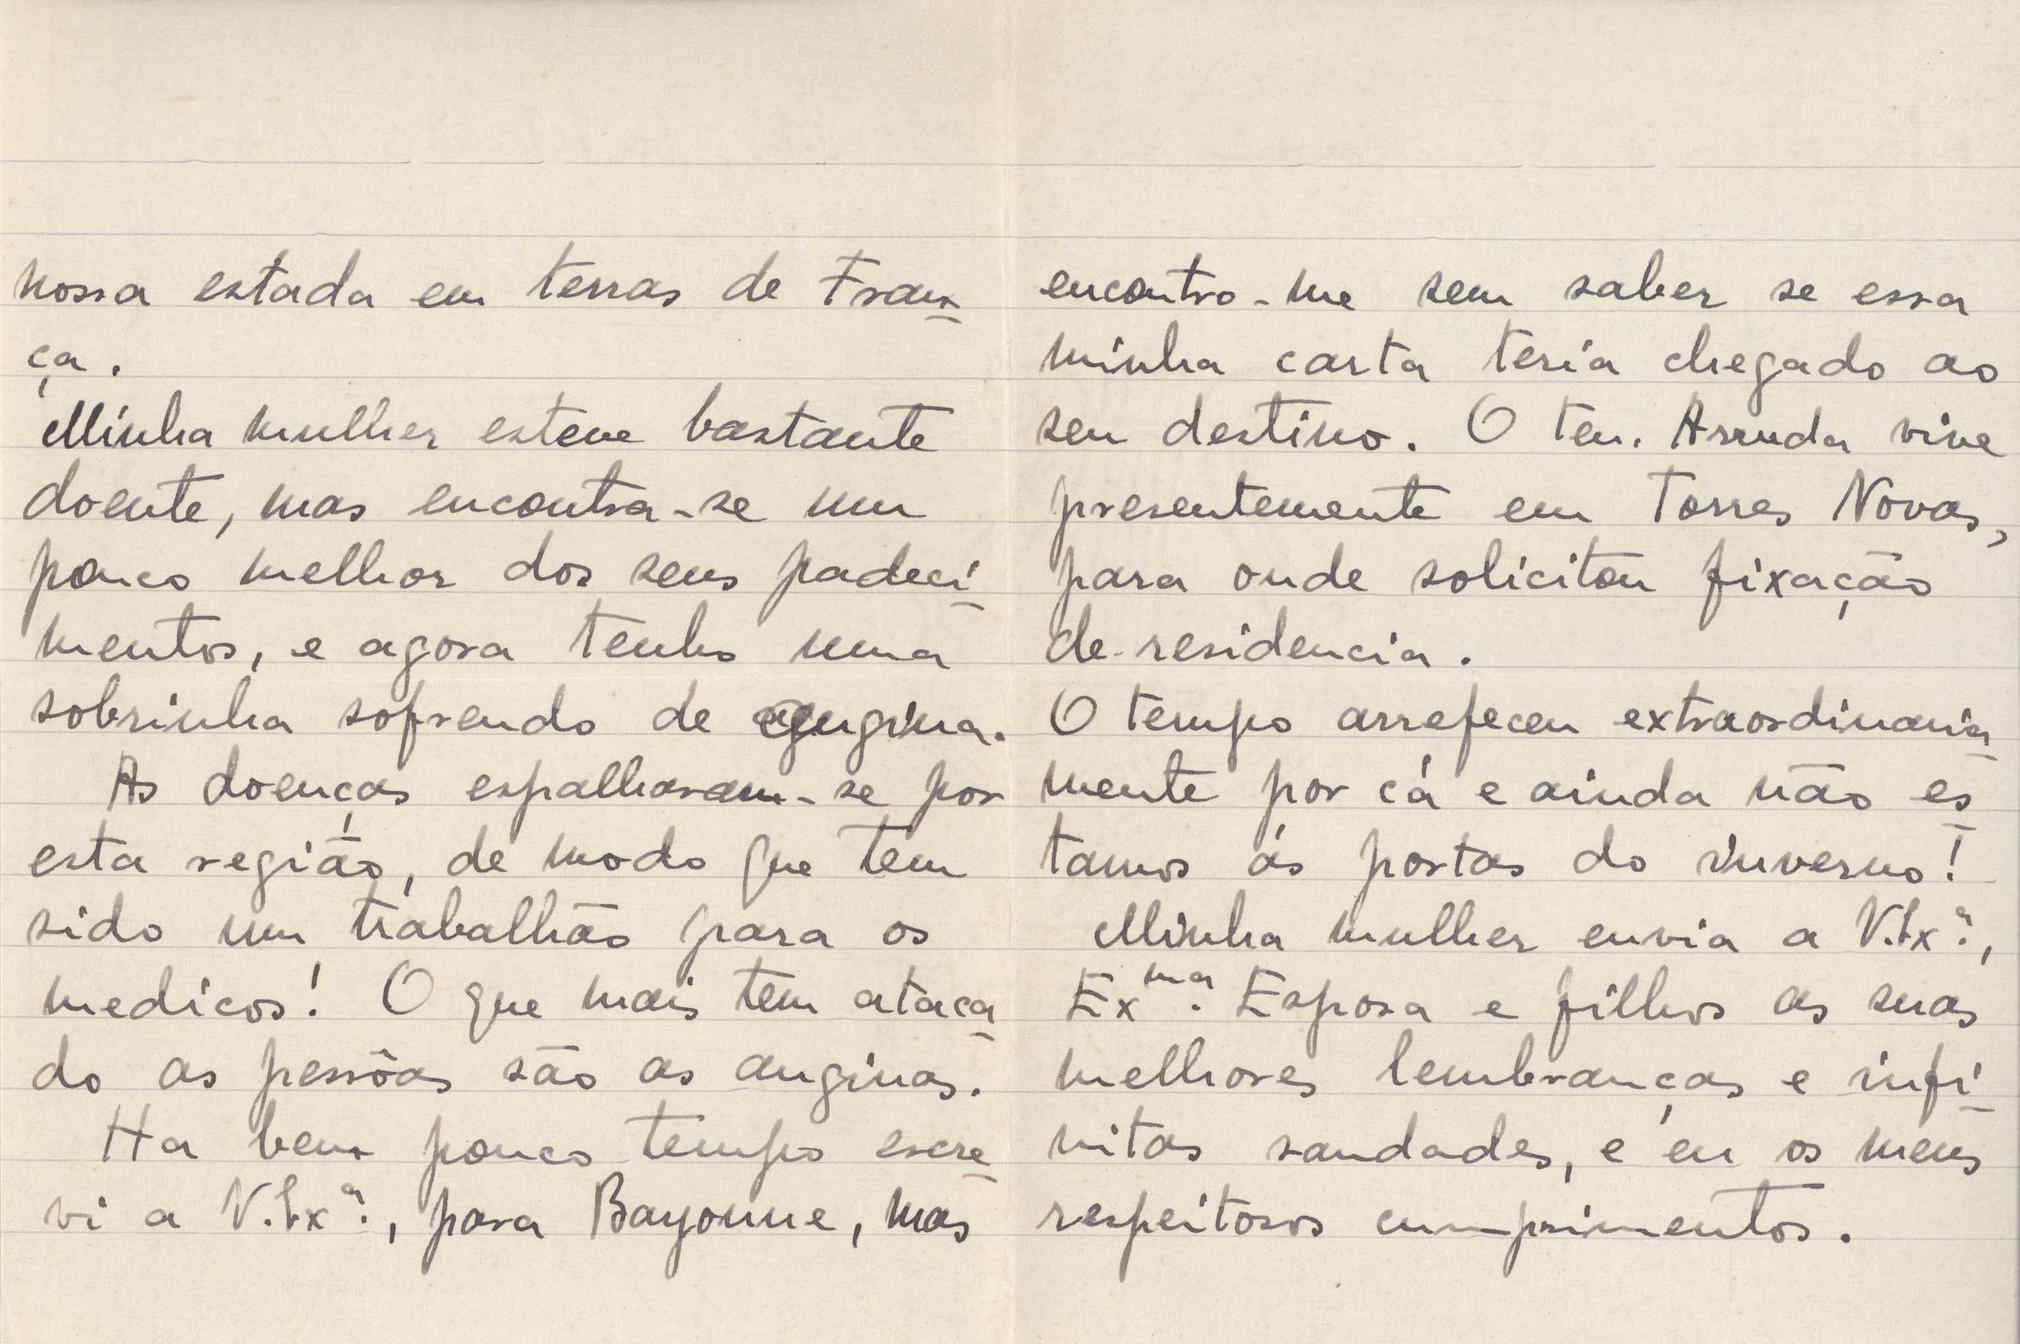 nossa estada em terras de Fran-
ça.
Minha mulher esteve bastante
doente, mas encontra-se um
pouco melhor dos seus padeci-
mentos, e agora tenho uma
sobrinha sofrendo de angina.
As doenças espalharam-se por
esta região, de modo que tem
sido um trabalhão para os
medicos! O que mais tem ataca-
do as pessôas são as anginas.
Ha bem pouco tempo escre-
vi a V.Exª., para Bayonne, mas
encontro-me sem saber se essa
minha carta teria chegado ao
seu destino. O ten. Arruda vive
presentemente em Torres Novas,
para onde solicitou fixação
de residencia.
O tempo arrefeceu extraordinaria-
mente por cá e ainda não es-
tamos ás portas do inverno!
Minha mulher envia a V.Exª.,
Exma. Esposa e filhos as suas
melhores lembranças e infi-
nitas saudades, e eu os meus
respeitosos cumprimentos.